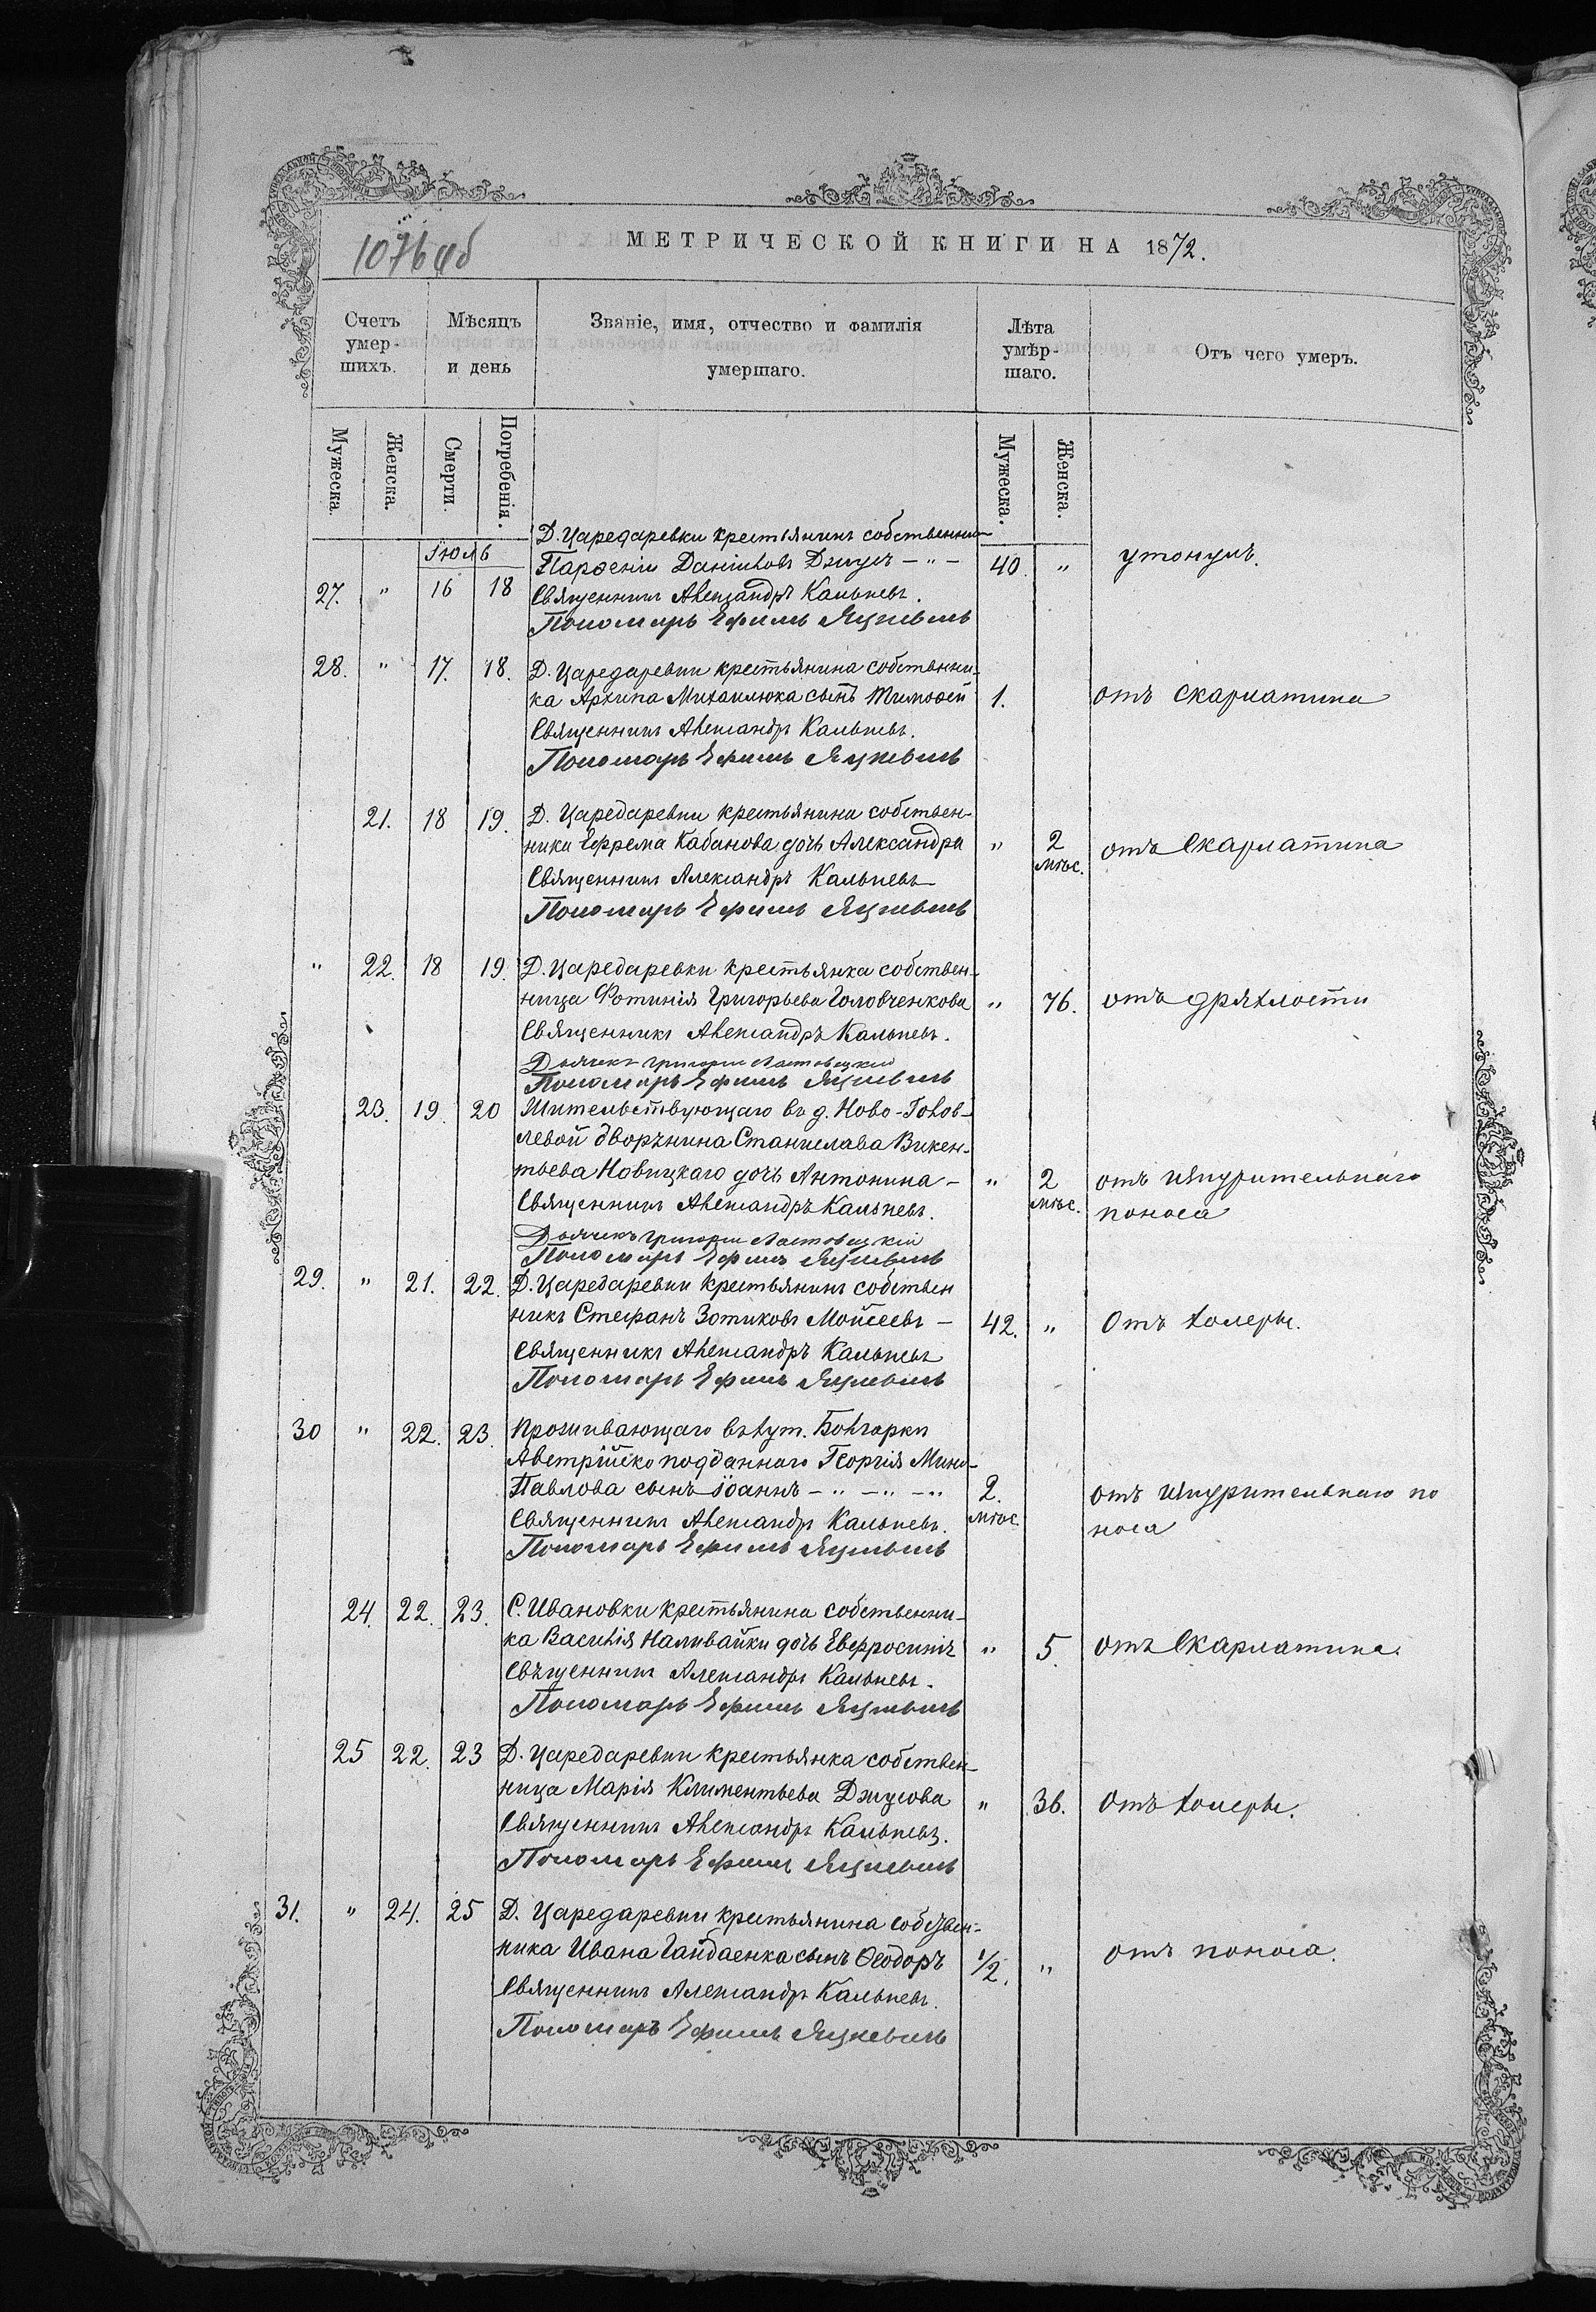 1076 об
МЕТРИЧЕСКОЙ КНИГИ НА 1872.
Счетъ умер-шихъ.
Мѣсяцъ и день
Званіе, имя, отчество и фамилія умершаго.
Лѣта умѣр-шаго.
Отъ чего умеръ.
Мужеска.
Женска.
Смерти.
Погребенія.
Мужеска.
Женска.
Іюль
Д. Царедаревки крестьянинъ собственни-
27. " 16 18 Парѳеній Даниловъ Джусъ - " - 40. " утонулъ.
Священникъ Александръ Кальневъ.
Пономарь Ефимъ Яцкевичъ
28. " 17. 18. Д. Царедаревки крестьянина собственни-
ка Архипа Михаилюка сынъ Тимоѳей 1. отъ скарлатина
Священникъ Александръ Кальневъ.
Пономарь Ефимъ Яцкевичъ
21. 18 19. Д. Царедаревки крестьянина собствен-
ника Ефрема Кабанова дочь Александра " 2 мѣс. отъ Скарлатина
Священникъ Александръ Кальневъ
Пономарь Ефимъ Яцкевичъ
" 22. 18 19. Д. Царедаревки крестьянка собствен-
ница Фотинія Григорьева Головченкова " 76. отъ дряхлости
Священникъ Александръ Кальневъ.
Дьячекъ Григорій Ластовецкій
Пономарь Ефимъ Яцкевичъ
23. 19. 20 Жительствующаго въ д. Ново-Голов-
левой дворянина Станислава Викен-
тьева Новицкаго дочь Антонина - " 2 мѣс. отъ изнурительнаго
Священникъ Александръ Кальневъ. поноса
Дьячекъ Григорій Ластовецкій
Пономарь Ефимъ Яцкевичъ
29. " 21. 22. Д. Царедаревки крестьянинъ собствен
никъ Стефанъ Зотиковъ Мойсеевъ - 42. " Отъ холеры.
Священникъ Александръ Кальневъ
Пономарь Ефимъ Яцкевичъ
30 " 22. 23. Проживающаго въ хут. Болгарки
Австрійско подданнаго Георгія Мина-
Павлова сынъ Іоаннъ - " - " - " 2. мѣс. отъ изнурительнаго по
Священникъ Александръ Кальневъ. носа
Пономарь Ефимъ Яцкевичъ
24. 22. 23. С. Ивановки крестьянина собственни-
ка Василія Наливайки дочь Евфросинія " 5. отъ Скарлатина.
Священникъ Александръ Кальневъ.
Пономарь Ефимъ Яцкевичъ
25 22. 23 Д. Царедаревки крестьянка собствен-
ница Марія Климентьева Джусова " 36. Отъ холеры.
Священникъ Александръ Кальневъ.
Пономарь Ефимъ Яцкевичъ
31. " 24. 25 Д. Царедаревки крестьянина собствен-
ника Ивана Гайдаенка сынъ Ѳеодоръ 1/2. " отъ поноса.
Священникъ Александръ Кальневъ.
Пономарь Ефимъ Яцкевичъ